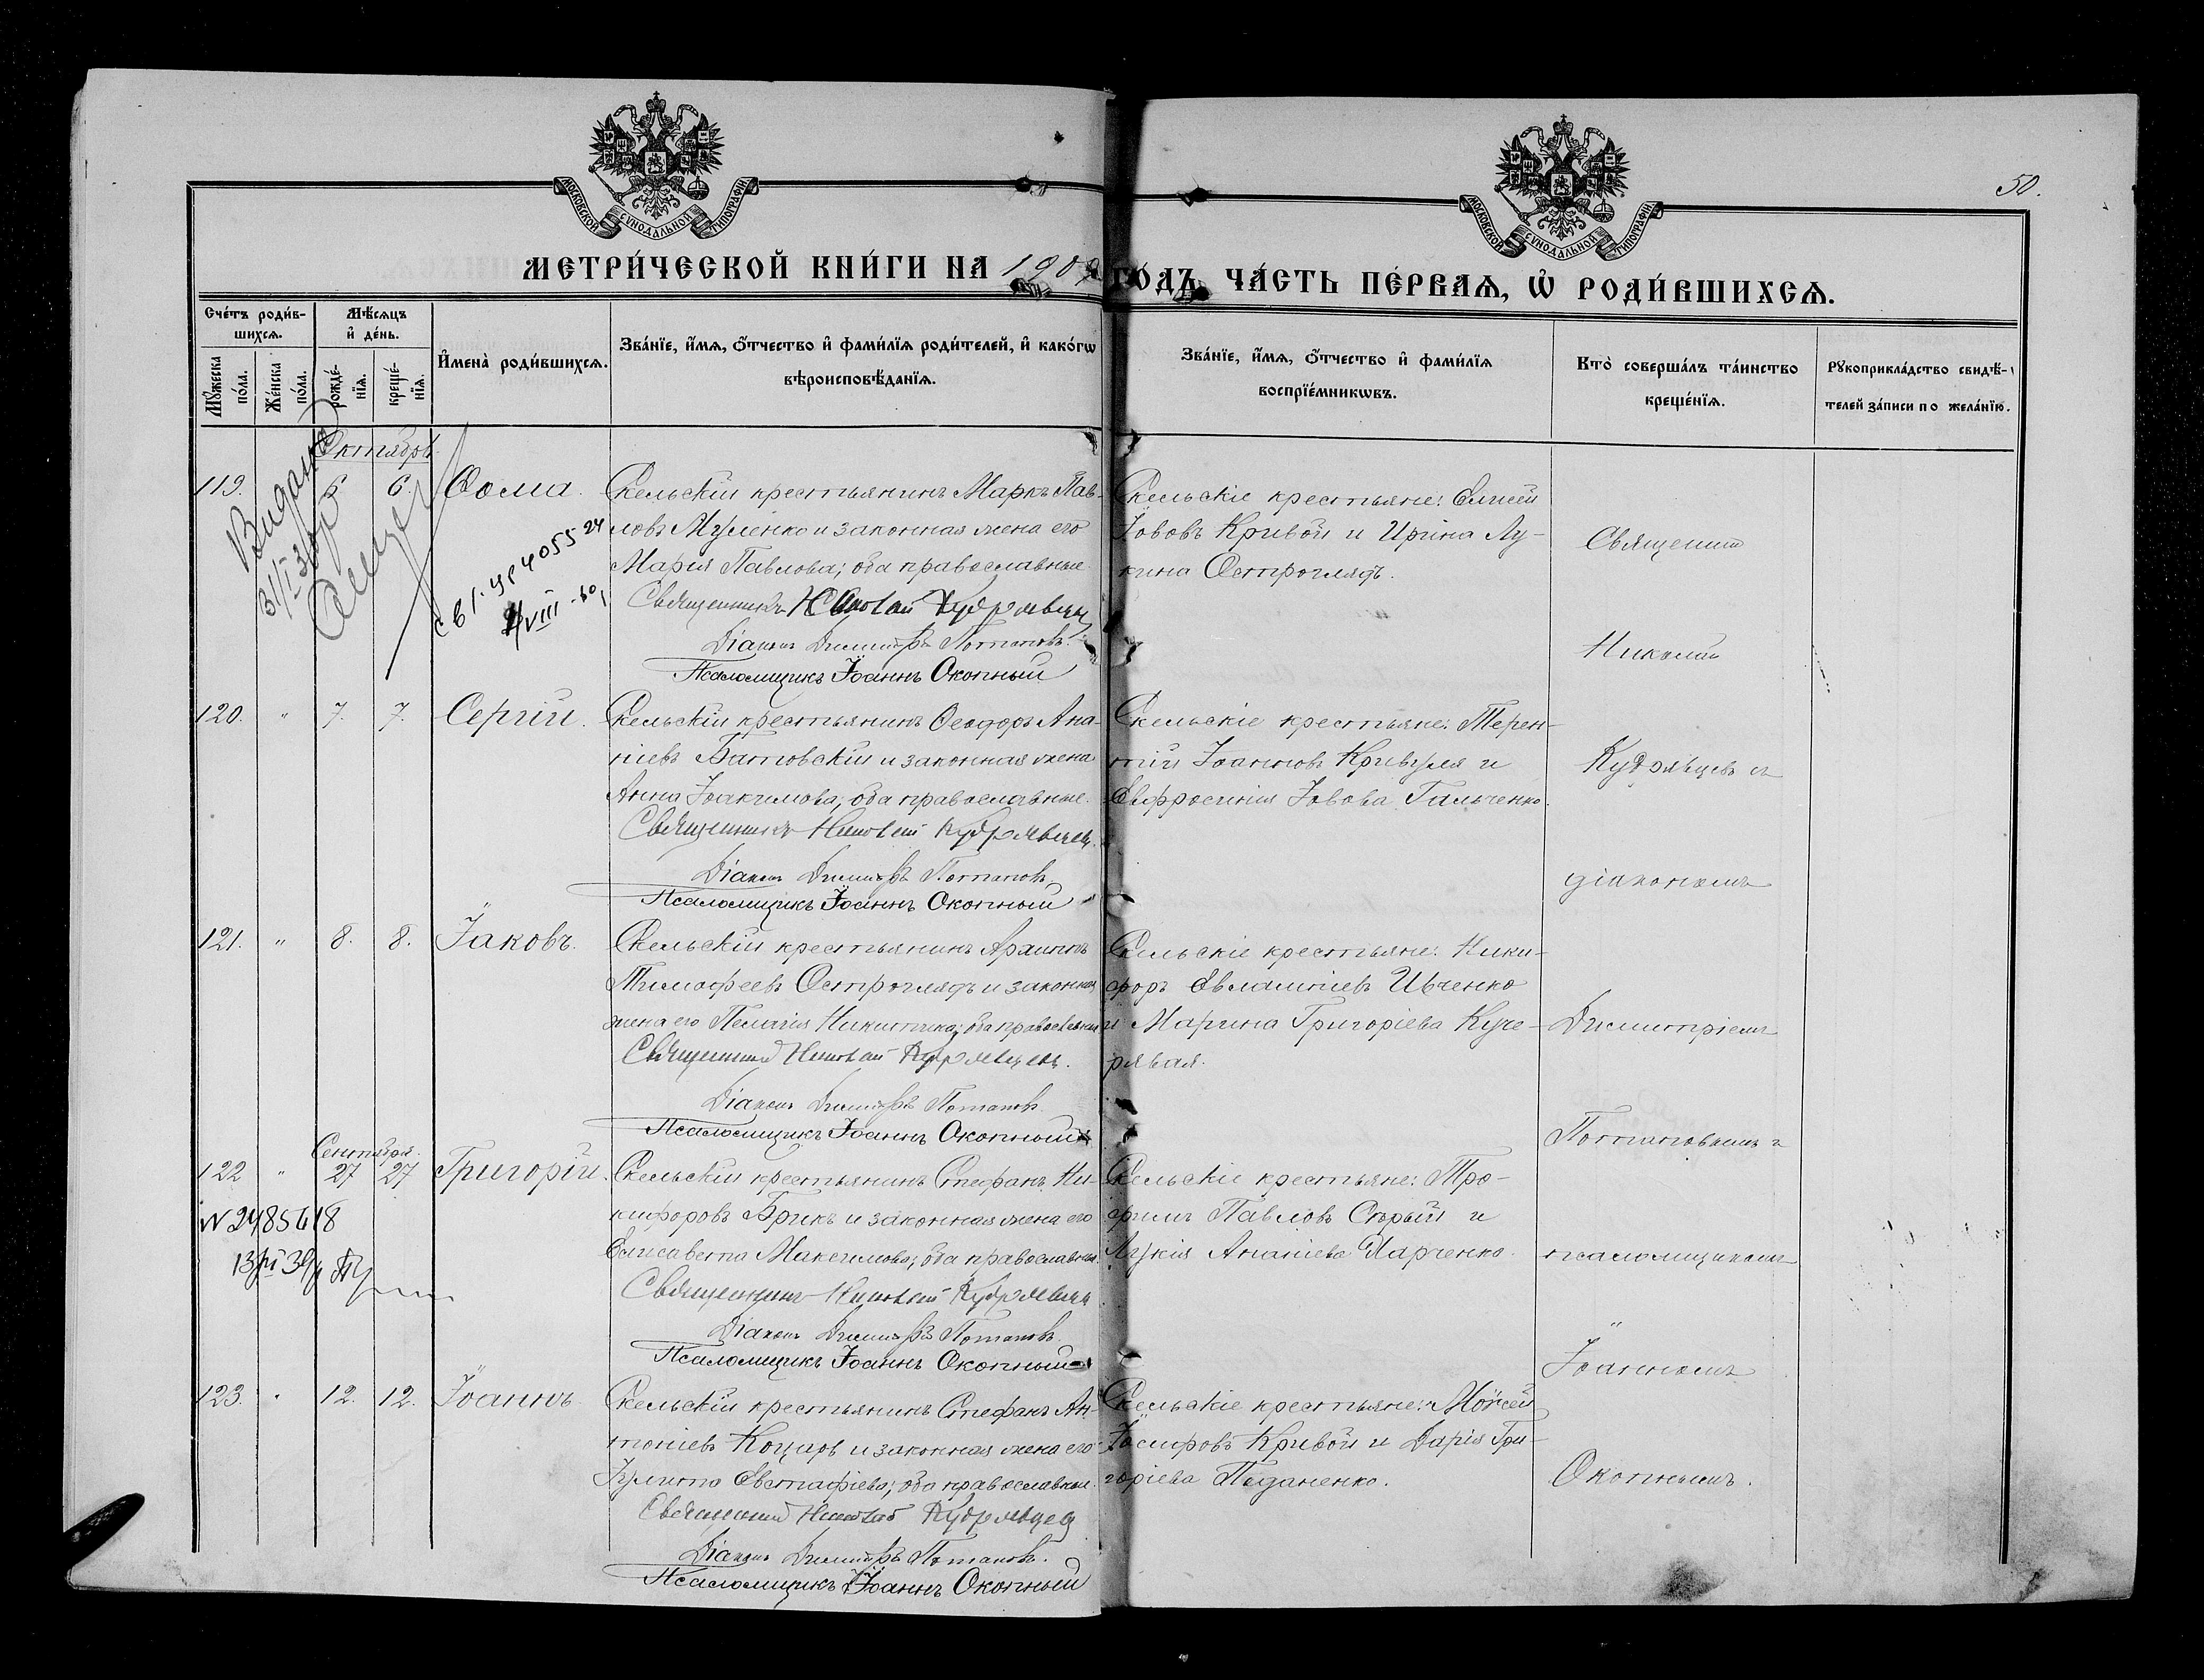 50.
МОСКОВСКОЙ СѴНОДАЛЬНОЙ ТИПОГРАФІИ
МОСКОВСКОЙ СѴНОДАЛЬНОЙ ТИПОГРАФІИ
МЕТРИ́ЧЕСКОЙ КНИ́ГИ НА 1909 ГО́ДЪ, ЧА́СТЬ ПЕ́РВАѦ, Ѡ҆ РОДИ́ВШИХСѦ.
Сче́тъ роди́в-
шихсѧ.
Мꙋ́жеска по́ла.
Же́нска по́ла.
Мѣ́сѧцъ
и҆ де́нь.
рожде́-нїѧ.
креще́-нїѧ.
И҆мена̀ роди́вшихсѧ.
Зва́нїе, и҆́мѧ, ѻ҆́тчество и҆ фами́лїѧ роди́телей, и҆ како́гѡ
вѣроисповѣ́данїѧ.
Зва́нїе, и҆́мѧ, ѻ҆́тчество и҆ фами́лїѧ
воспрїе́мникѡвъ.
Кто̀ соверша́лъ та́инство
креще́нїѧ.
Рꙋкоприкла́дство свидѣ́-
телей за́писи по жела́нїю.
Октябрь.
119. 6. 6. Ѳома.
Скельскій крестьянинъ Маркъ Пав-
ловъ Муленко и законная жена его
Марія Павлова; оба православные.
Священникъ Николай Кудрявцев
Діаконъ Димитрій Потаповъ.
Псаломщикъ Іоаннъ Окопный
Скельскіе крестьяне: Елисей
Іововъ Кривой и Ирина Лу-
кина Остроглядъ.
Видано
31/I 30р
св I. ЦР 4055 24
VIII - 60
120. " 7. 7. Сергій.
Скельскій крестьянинъ Ѳеодоръ Ана-
ніевъ Батовскій и законная жена
Анна Іоакимова; оба православные.
Священникъ Николай Кудрявцев.
Діаконъ Димитрій Потаповъ.
Псаломщикъ Іоаннъ Окопный
Скельскіе крестьяне: Терен-
тій Іоанновъ Кривуля и
Евфросинія Іовова Гальченко.
121. " 8. 8. Іаковъ.
Скельскій крестьянинъ
Тимофеевъ Остроглядъ и законная
жена его Пелагія Никитина; оба православные
Священник Николай Кудрявцев.
Діаконъ Димитрій Потаповъ.
Псаломщикъ Іоаннъ Окопный
Скельскіе крестьяне: Ники-
форъ Евлампіевъ Ивченко
и Марина Григоріева Куче-
рявая.
Сентября.
122 " 27 27 Григорій.
Скельскій крестьянинъ Стефанъ Ни-
кифоровъ Брикъ и законная жена его
Елисавета Максимова; оба православные.
Священникъ Николай Кудрявцев
Діаконъ Димитрій Потаповъ.
Псаломщикъ Іоаннъ Окопный
Скельскіе крестьяне: Тро-
фимъ Павловъ Сѣрый и
Лукія Ананіева Харченко.
N 2485618
123. " 12. 12. Іоаннъ
Скельскій крестьянинъ Стефанъ Ан-
тоніевъ Коцаръ и законная жена его
Іулитта Евстафіева; оба православные.
Священник Николай Кудрявцев
Діаконъ Димитрій Потаповъ.
Псаломщикъ Іоаннъ Окопный
Скельскіе крестьяне: Моѵсей
Іосифовъ Кривой и Дарія Гри-
горіева Педаненко.
Священник
Николай
Кудрявцевъ съ
діакономъ
Димитріемъ
Потаповымъ и
псаломщикомъ
Іоанномъ
Окопнымъ.